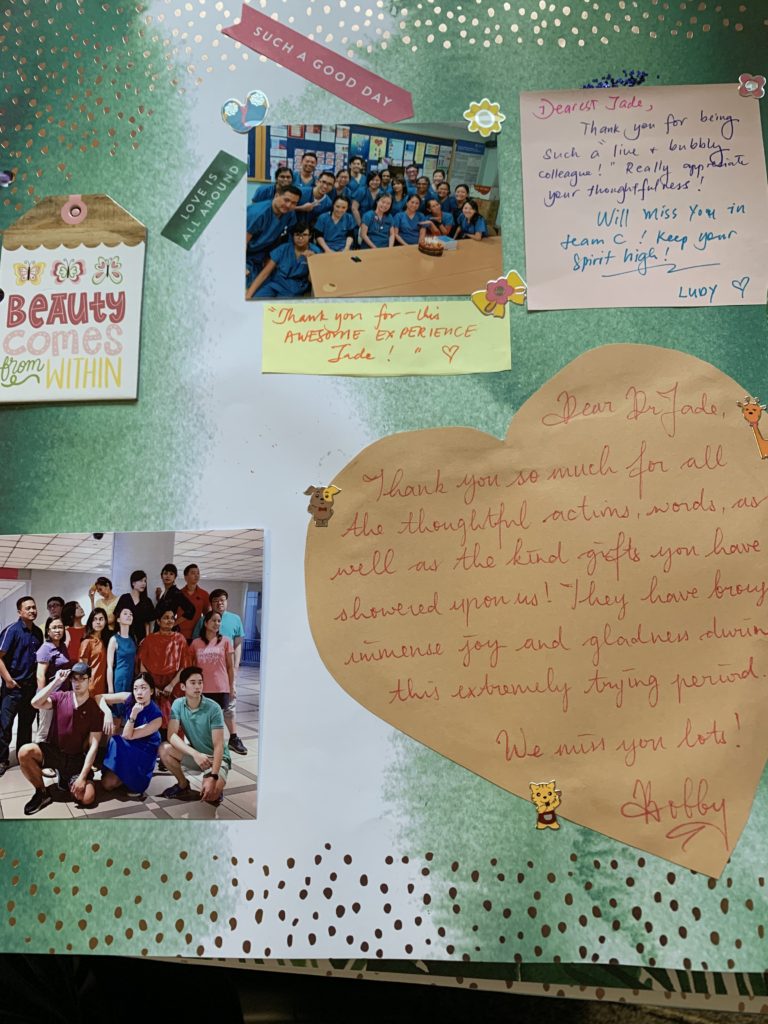 SUCH A GOOD DAY
LOVE IS
ALL AROUND
BEAUTY
COMES
from WITHIN
"Thank you for this
AWESOME EXPERIENCE
Jade! " ♡
Dearest Jade,
Thank you for being
such a "live + bubbly
colleague!" Really appreciate
your thoughtfulness!
Will miss you in
team C! Keep your
spirit high!
LUDY ♡
Dear Dr Jade,
Thank you so much for all
the thoughtful actions, words, as
well as the kind gifts you have
showered upon us! They have broug
immense joy and gladness durin
this extremely trying period.
We miss you lots!